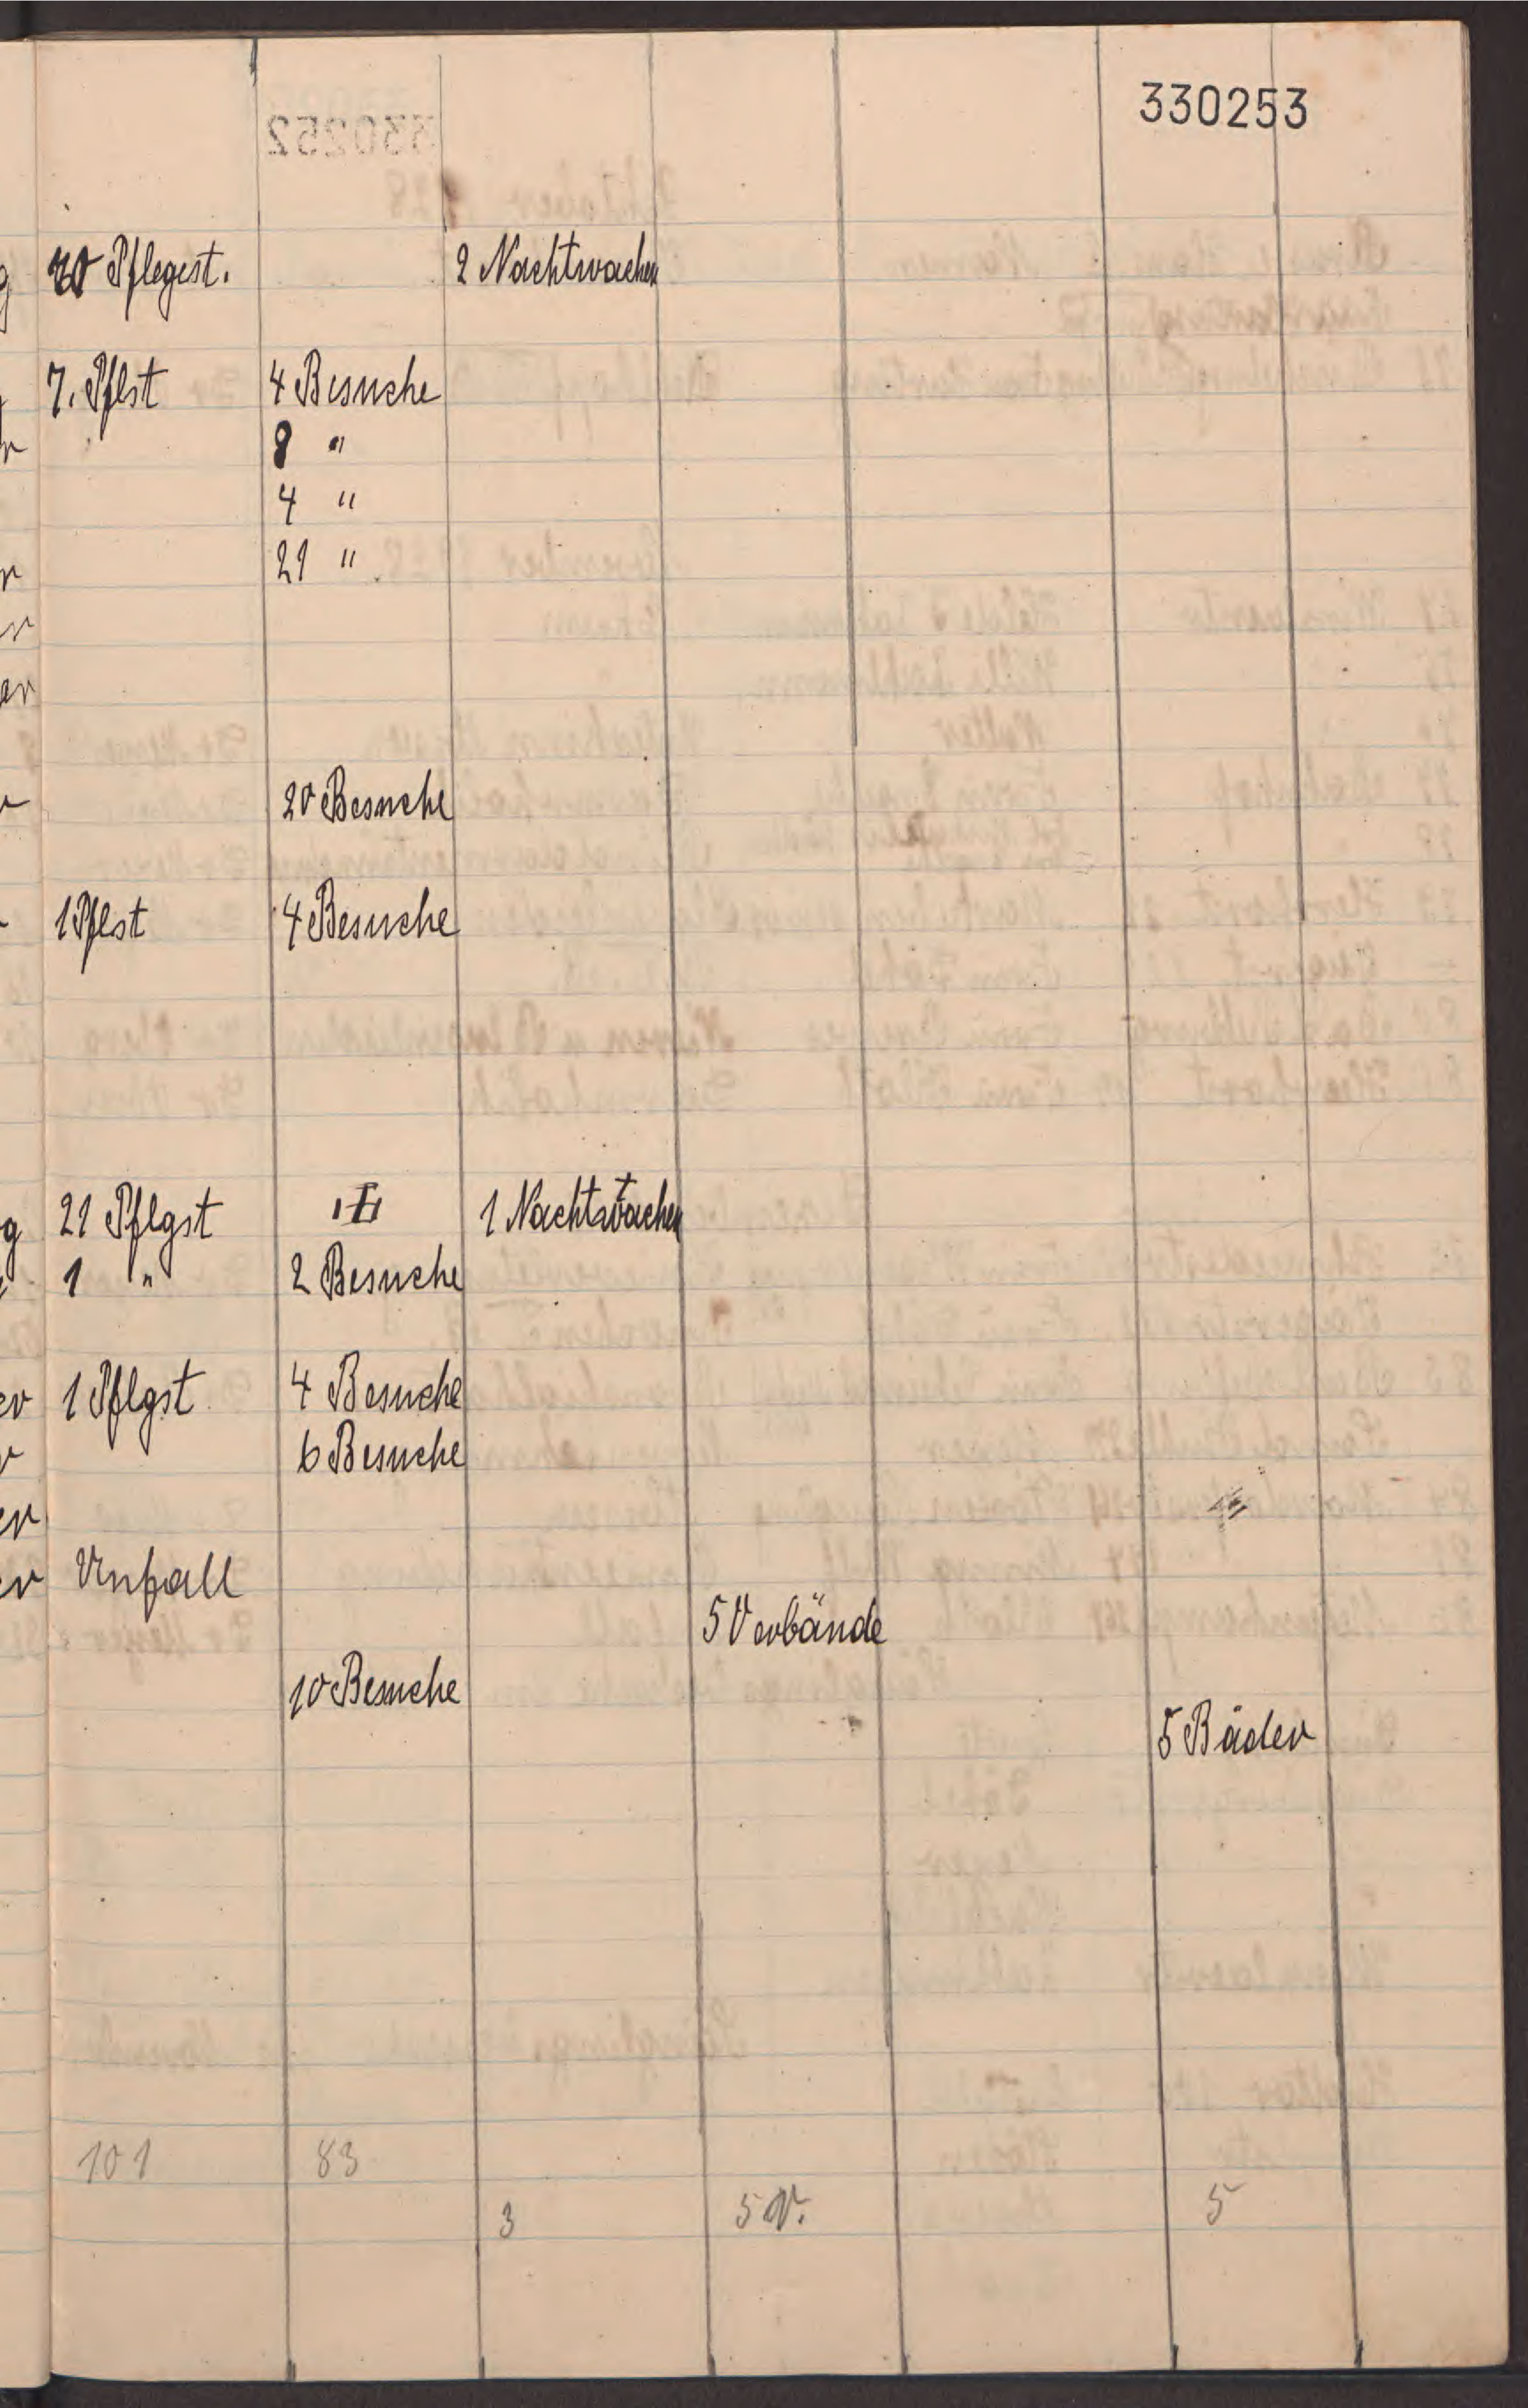 330253
Pflegest. 2 Nachtwachen
7. Pflst 4 Besuche
8 "
4 "
21 "
20 Besuche
1 Pflst 4 Besuche
21 Pflgst 1 Nachtwachen
1 " 2 Besuche
1 Pflgst 4 Besuche
6 Besuche
Unfall
5 Verbände
10 Besuche
5 Bäder
101 83
3 5 V. 5